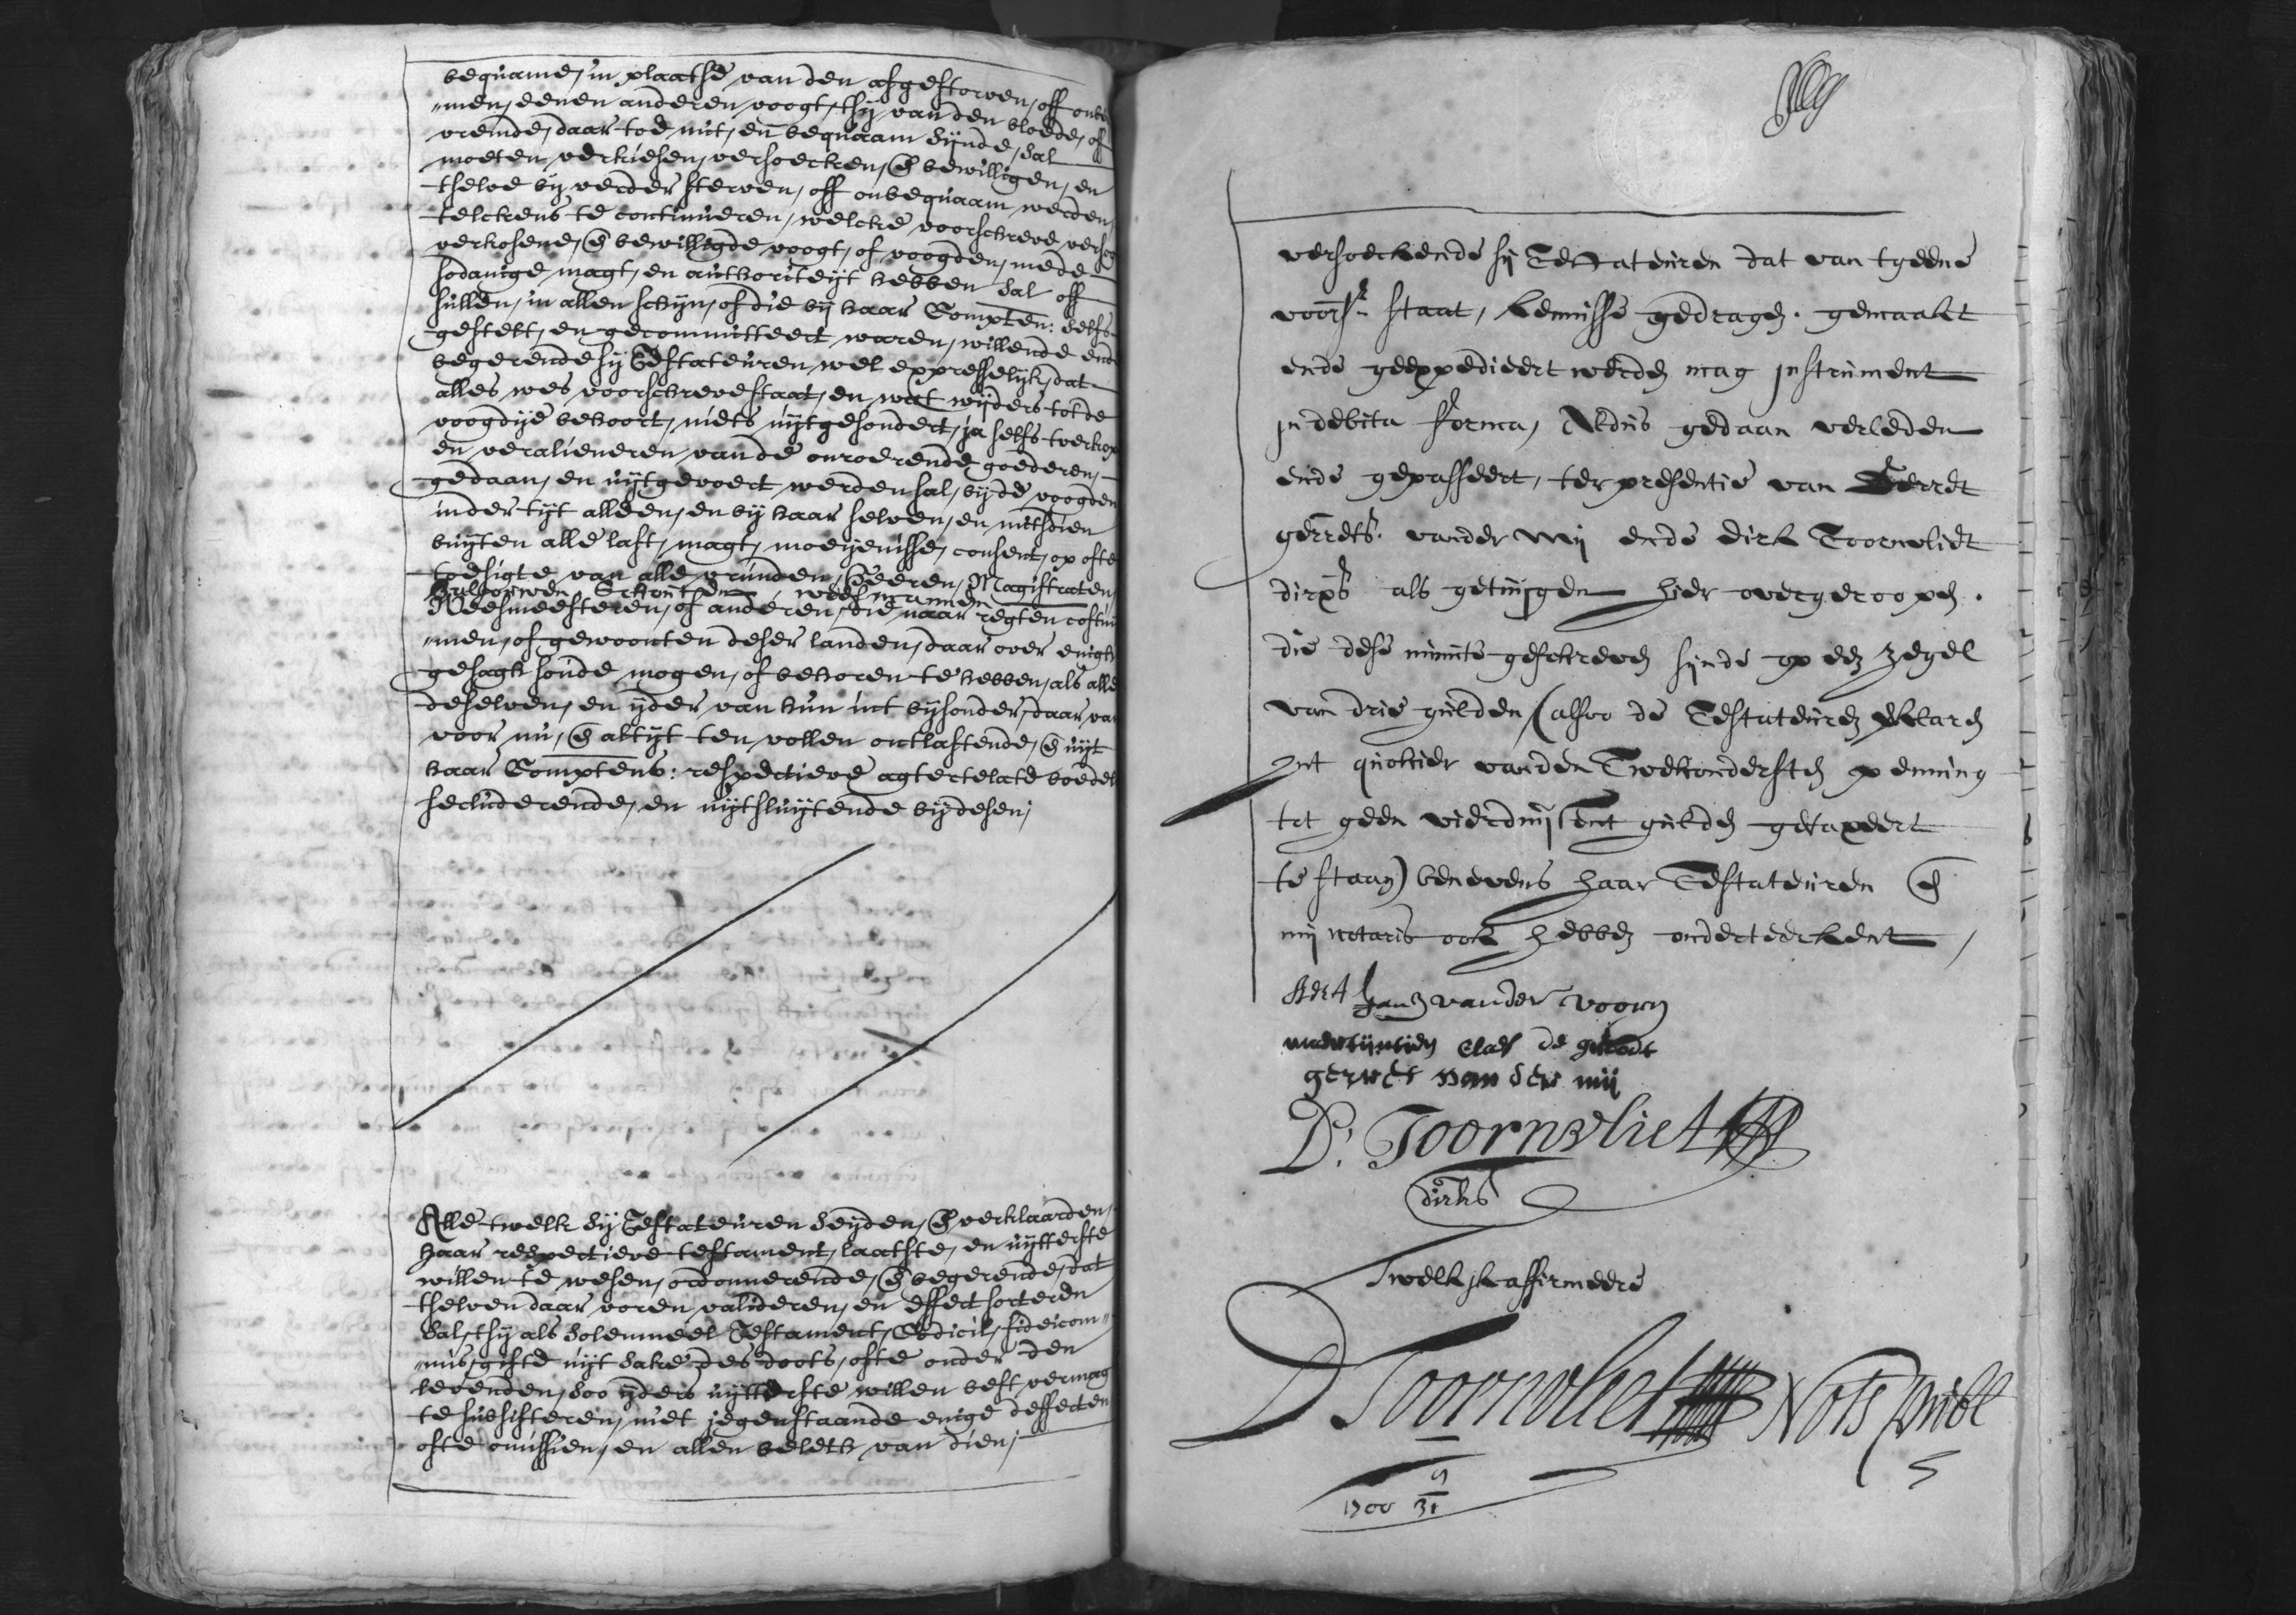 bequame, in plaatse van den afgestorven, off onbe
„men, eenen anderen voogt, 'tsij van den bloede, of
vreemde, daar toe nut, en bequaam sijnde, sal
moeten verkiesen, versoecken, en bewilligen, en
tselve bij verder sterven, off onbequaam werden,
telckens te continueren, welcke voorschreve versog
verkosene, en bewilligde voogt, of voogden, mede
sodanige magt, en authoriteijt hebben sal off
sullen, in allen schijn, of die bij haar Compten: selfs
gestelt, en gecommitteert waren, willende ende
begerende sij Testateuren, wel expresselijk, dat
alles wes voorschreve staat, en wat wijders tot de
voogdije behoort, niets uijtgesondert, ja selfs tverkop
en veralieneren, van de onroerende goederen,
gedaan, en uijtgevoert werden sal, bij de voogden
inder tijt alleen, en bij haar selven, en mitsdien
buijten alle last, magt, moeijenisse, consent, op ofte
toesigte van alle vrunden, Heeren, Magistraten,
Baljouwen, Schouten, Weesmannen
Weesmeesteren, of anderen, die naar regten costu
„men, of gewoonten deser landen, daar over enigh
gesagh soude mogen, of behoren te hebben, als alle
deselven, en ijder van hun int bijsonder, daar van
voor nu, en altijt ten vollen ontlastende, en uijt
haar Comptens: respective agtertelate boedel
secluderende, en uijtsluijtende bij desen;
Alle twelk sij Testateuren seijden, en verklaarden,
haar respective testament, laatste, en uijtterste
willen te wesen, ordonnerende, en begerende, dat
tselven daar voren valideren, en effect sorteren
sal, tsij als solemneel Testament, Codicil, fideicom„
„mis, gifte uijt sake des doots, ofte onder den
levenden, soo ijders uijtterste willen best vermag
te subsisteren, niet jegenstaande enige deffecten
ofte omissien, en allen beleth van dien;
versoeckende sij Testateuren dat van tgeene
voors. staat, kennisse gedragen. gemaakt
ende geexpedieert werden mag Instrument
in debita forma, Aldus gedaan verleden
ende gepasseert, ter presentie van Gerret
gerrets. vander Mij ende dirk Toornvliet
dirxs als getuijgen hier over geroopen.
die dese minute geschreven sijnde op een zegel
van drie gulden, (alsoo de Testateuren verklaren
int quohier vanden Tweehondersten penning
tot geen vierduijsent gulden getaxeert
te staan) benevens haar Testateuren en
mij notaris ook hebben onderteekent,
Aert Janz vander voorn
maertijntien claes de groodt
gerret van der mij
D. Toornvliet
dirks
Twelk ik affirmeere
D Toornvliet Nots publ
1700 9/31